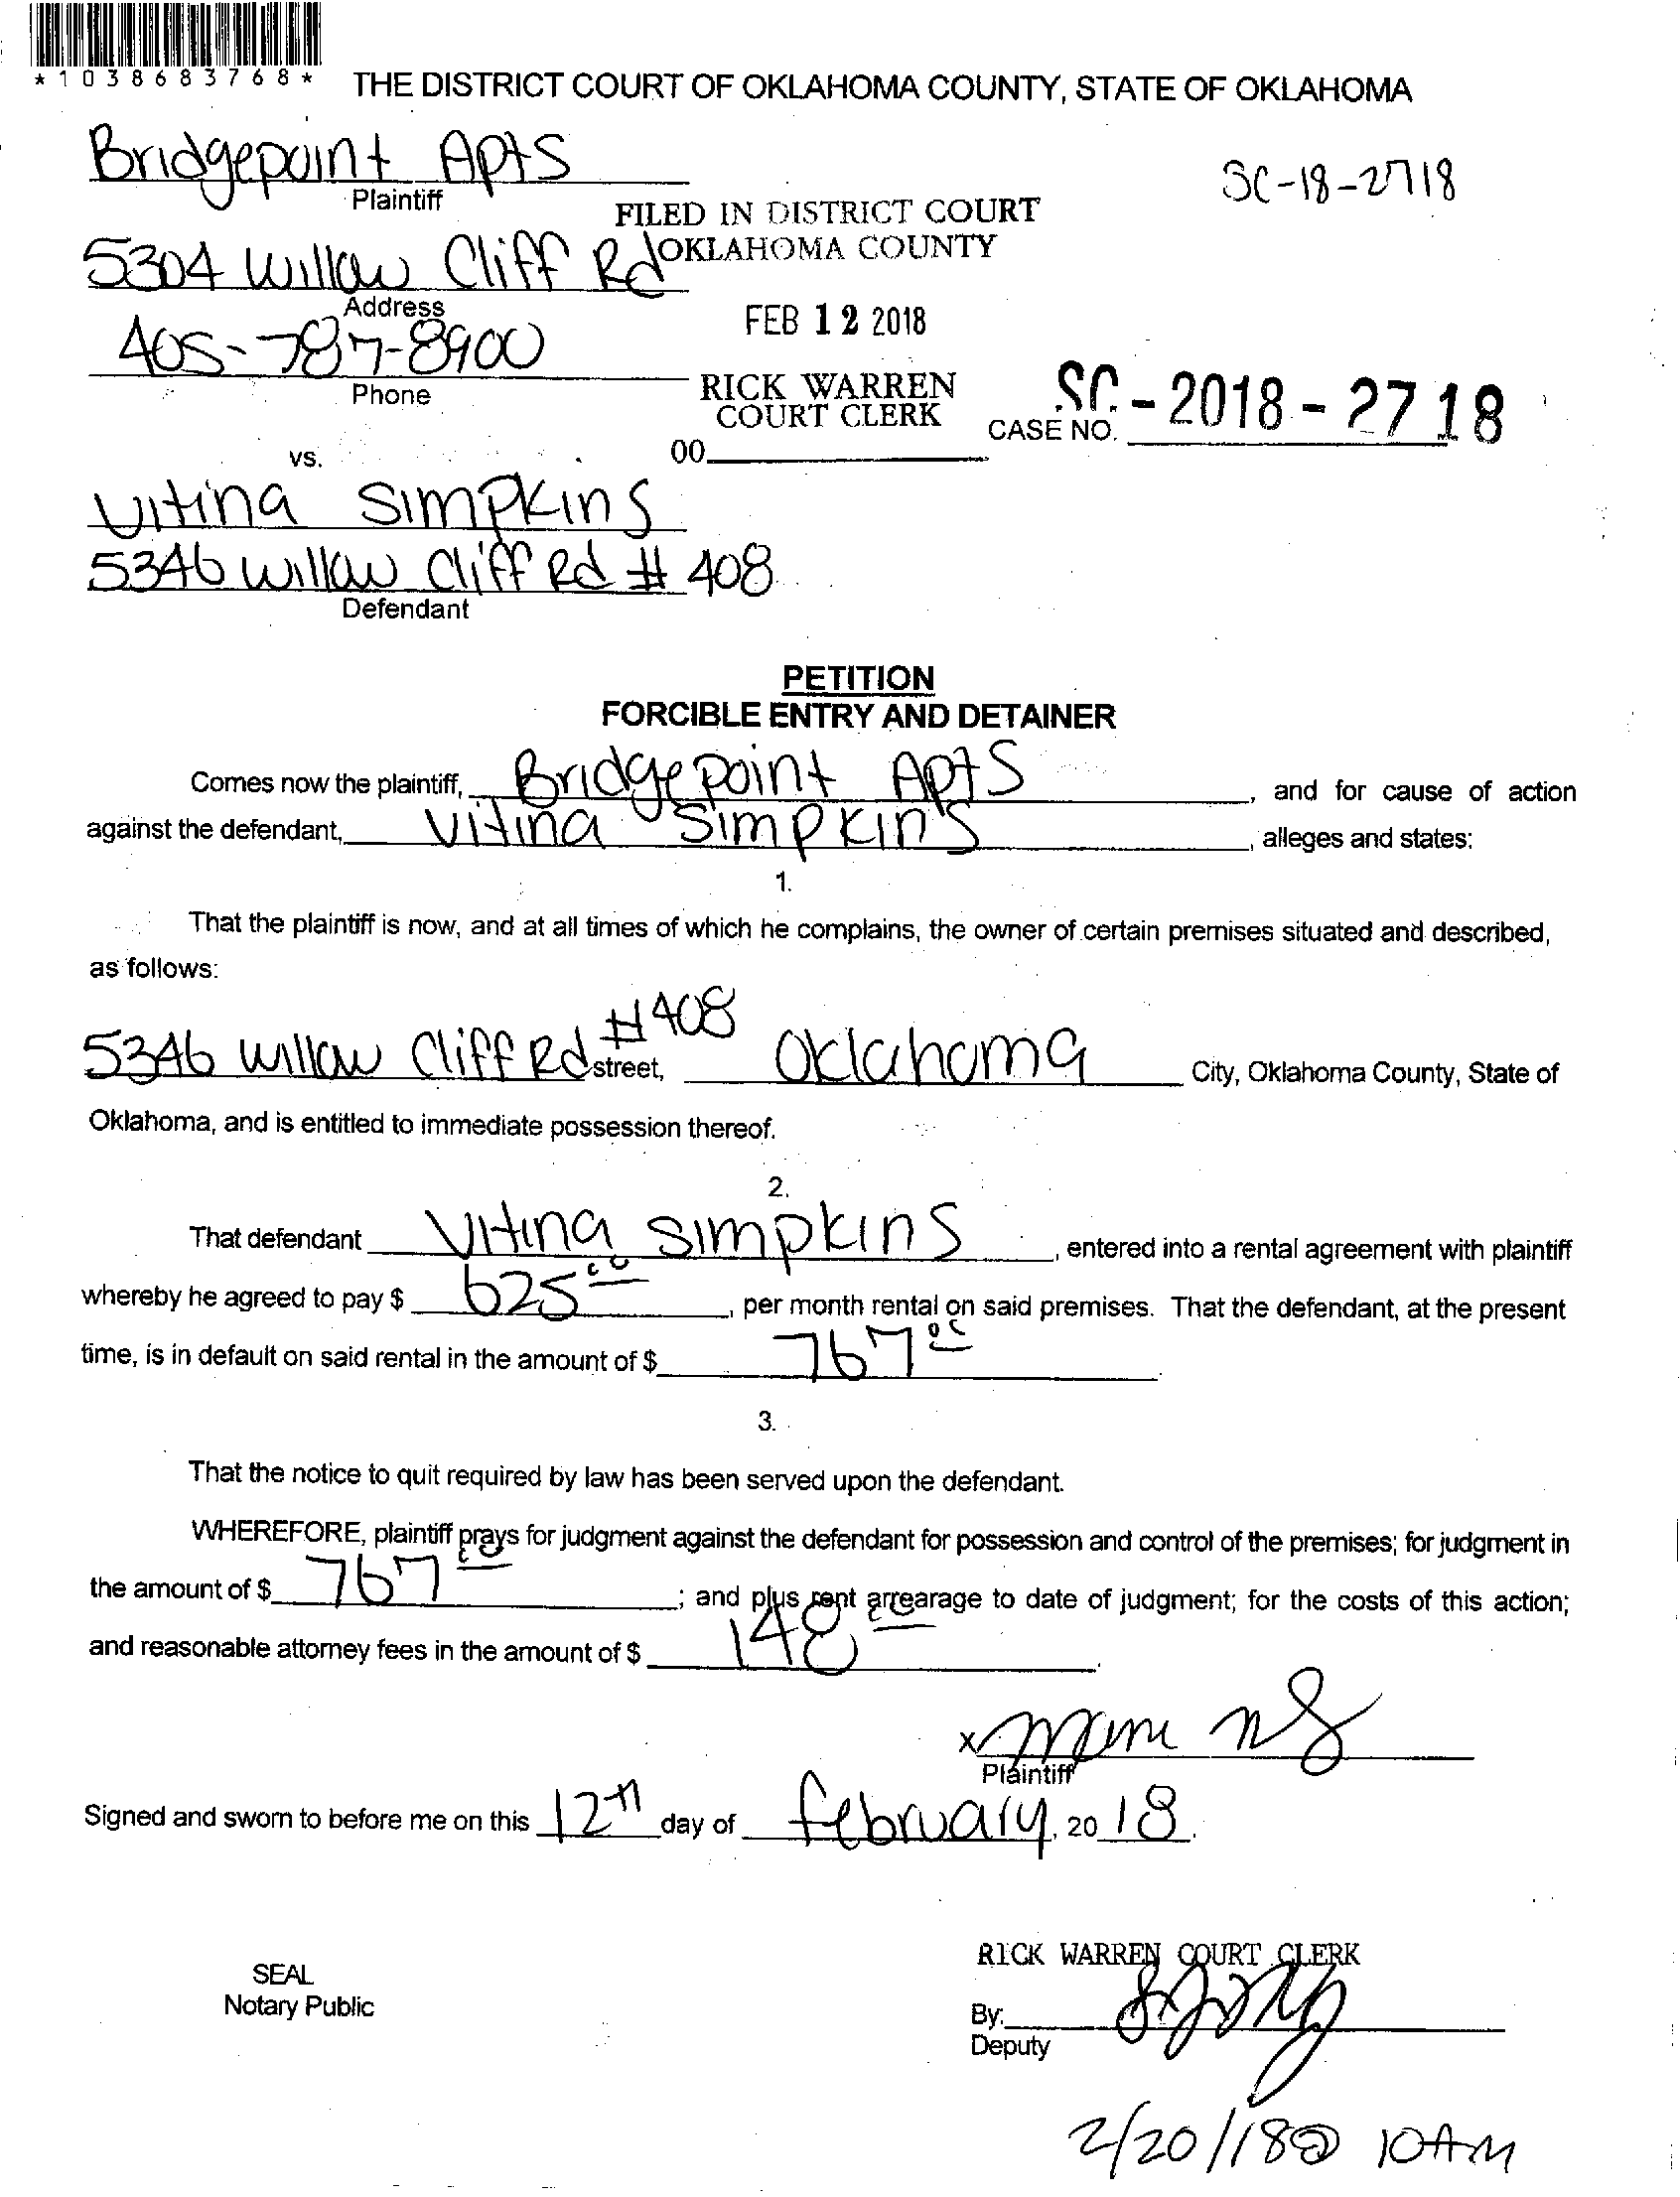 *1038683768*
THE DISTRICT COURT OF OKLAHOMA COUNTY, STATE OF OKLAHOMA
Bridgepoint Apts
Plaintiff
SC-18-2718
FILED IN DISTRICT COURT
OKLAHOMA COUNTY
5304 Willow Cliff Rd
Address
FEB 12 2018
405-787-8900
Phone
RICK WARREN
COURT CLERK
CASE NO. SC-2018-2718
00
vs.
Vitina Simpkins
5346 Willow Cliff Rd # 408
Defendant
PETITION
FORCIBLE ENTRY AND DETAINER
Comes now the plaintiff, Bridgepoint Apts, and for cause of action
against the defendant, Vitina Simpkins, alleges and states:
1.
That the plaintiff is now, and at all times of which he complains, the owner of certain premises situated and described,
as follows:
5346 Willow Cliff Rd #408 street, Oklahoma City, Oklahoma County, State of
Oklahoma, and is entitled to immediate possession thereof.
2.
That defendant Vitina Simpkins, entered into a rental agreement with plaintiff
whereby he agreed to pay $ 625.00, per month rental on said premises. That the defendant, at the present
time, is in default on said rental in the amount of $ 767.00.
3.
That the notice to quit required by law has been served upon the defendant.
WHEREFORE, plaintiff prays for judgment against the defendant for possession and control of the premises; for judgment in
the amount of $ 767.00; and plus rent arrearage to date of judgment; for the costs of this action;
and reasonable attorney fees in the amount of $ 148.00.
x
Plaintiff
Signed and sworn to before me on this 12th day of february, 2018.
RICK WARREN COURT CLERK
SEAL
Notary Public
By:
Deputy
2/20/18@ 10AM